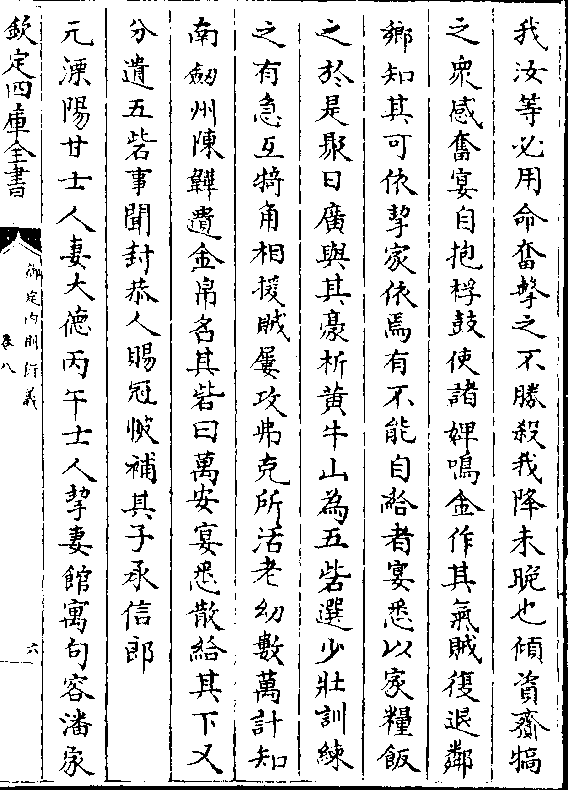 我汝等必用命奮擊之不勝殺我降未晚也傾資齎犒
之衆感奮宴自抱桴鼓使諸婢鳴金作其氣賊復退鄰
鄉知其可依挈家依焉有不能自給者宴悉以家糧飯
之於是聚日廣與其豪析黄牛山為五砦選少壯訓練
之有急互犄角相援賊屢攻弗克所活老幼數萬計知
南劒州陳韡遺金帛名其砦曰萬安宴悉散給其下又
分遺五砦事聞封恭人賜冠帔補其子承信郎
元溧陽甘士人妻大德丙午士人挈妻館寓句容潘家
欽定四庫全書
御定内則衍義
卷八
六